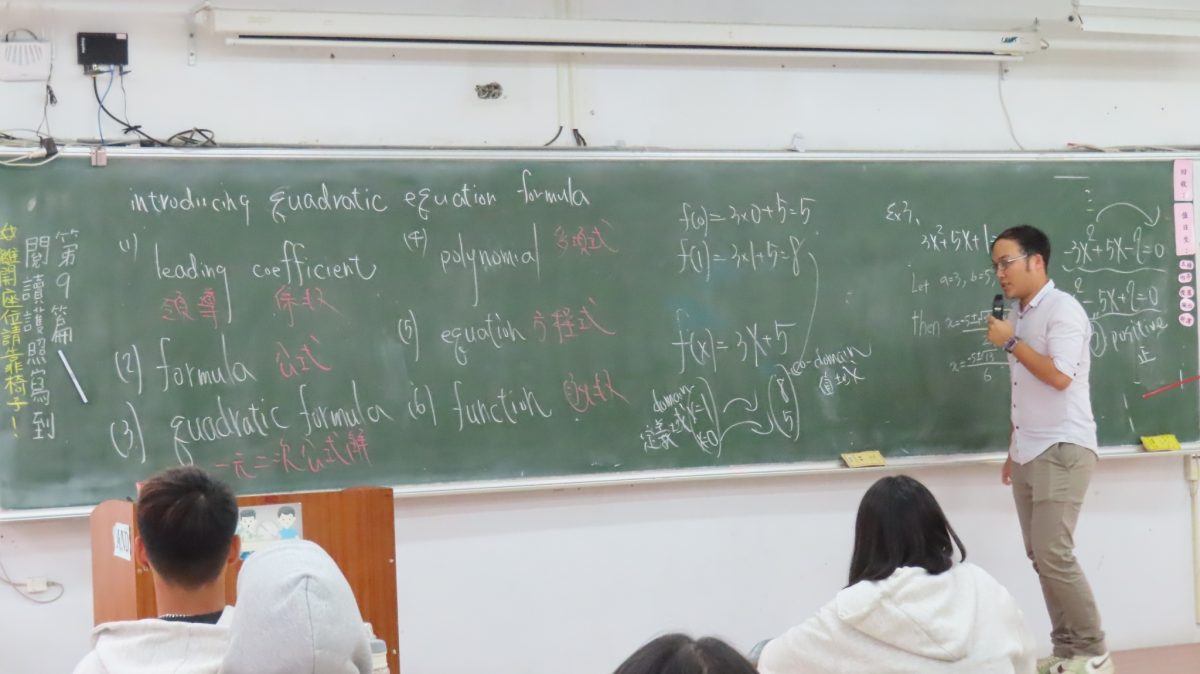 第9篇
閱讀護照寫到
離開座位請靠椅子！
introducing quadratic equation formula
(1) leading coefficient
領導 係數
(2) formula 公式
(3) quadratic formula
一元二次公式解
(4) polynomial 多項式
(5) equation 方程式
(6) function 函數
f(0)=3x0+5=5
f(1)=3x1+5=8
f(x)=3x+5
domain
定義域
x=1
x=0
8
5
co-domain
Ex3.
3x²+5x+1=
Let a=3, b=5,
then
-3x²+5x-9=0
-5x+9=0
positive
正
值日生：
AND